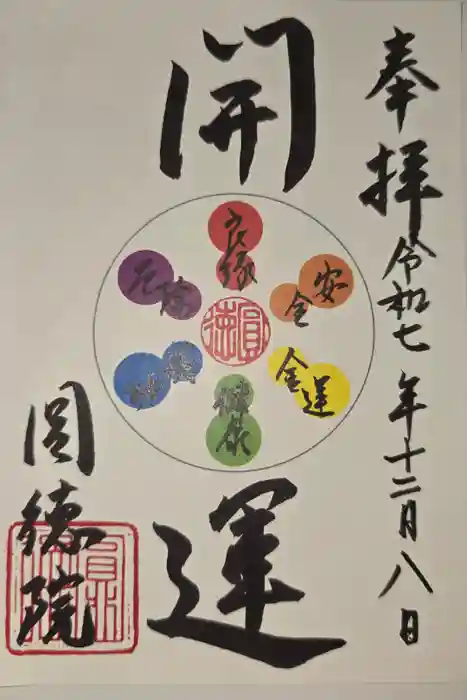 奉拝 令和七年十二月八日
開運
良縁
安全
金運
健康
学業
厄除
圓徳
圓徳院